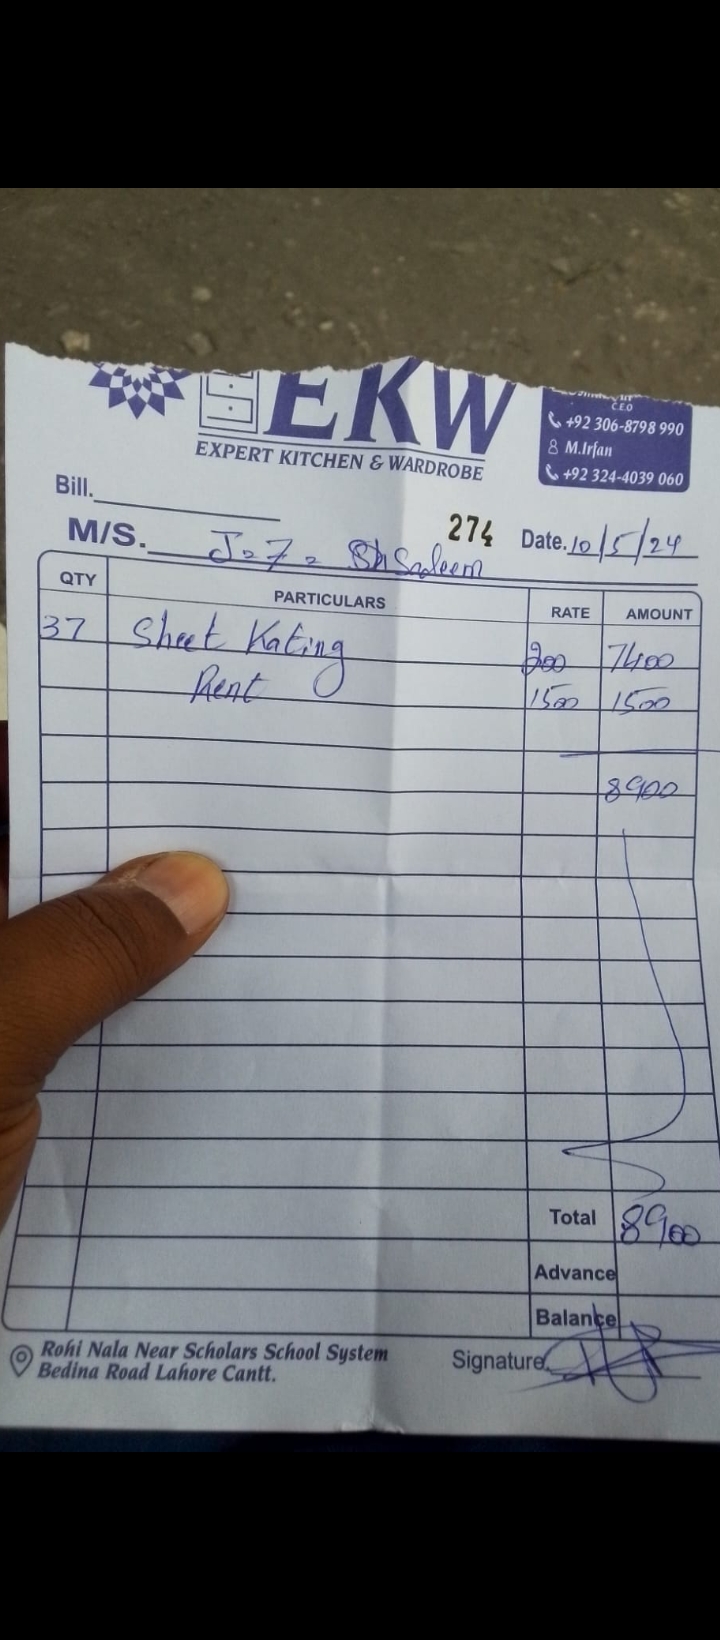 EKW
EXPERT KITCHEN & WARDROBE
C.E.O
+92 306-8798 990
M.Irfan
+92 324-4039 060
Bill.
274
Date. 10/5/24
M/S. J-7- Saleem
QTY PARTICULARS RATE AMOUNT
37 Sheet Kating 200 7400
Rent 1500 1500
8900
Total 8900
Advance
Balance
Signature.
Rohi Nala Near Scholars School System
Bedina Road Lahore Cantt.